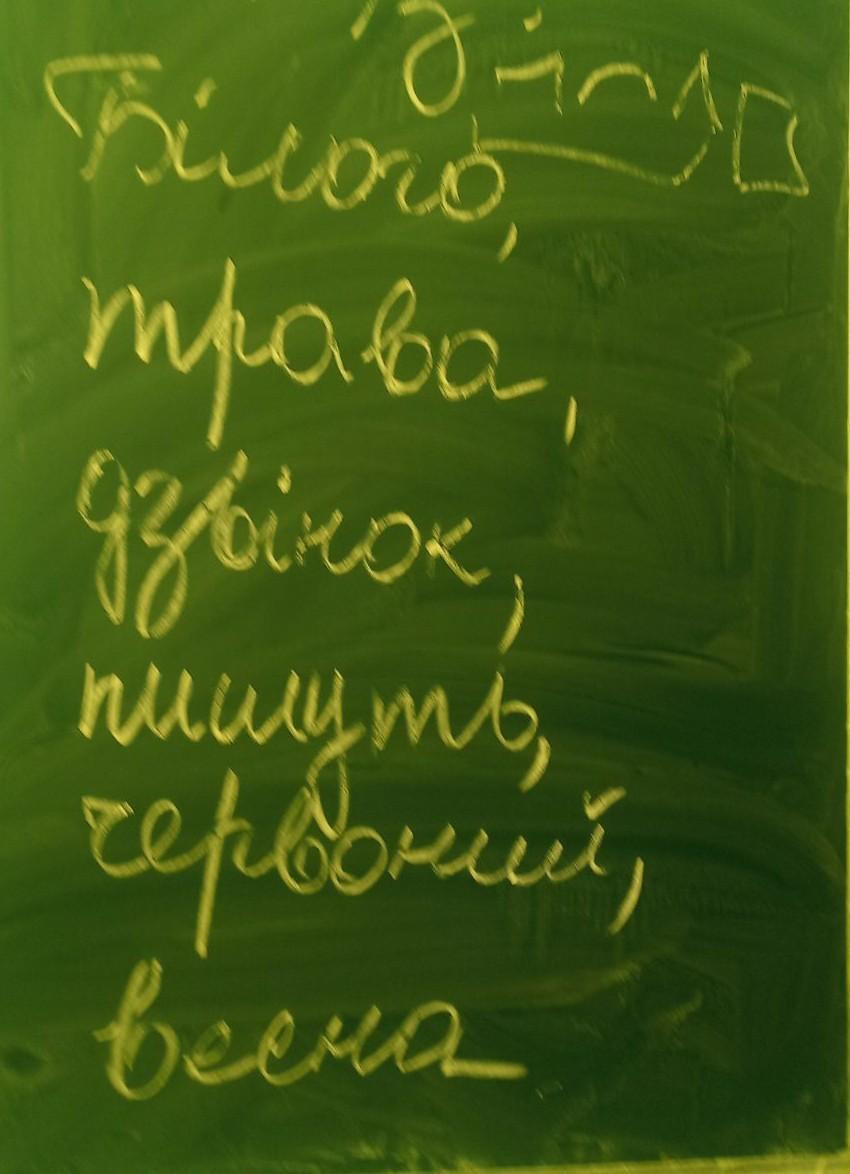 Білого,
трава,
дзвінок,
пишуть,
червоний,
весна